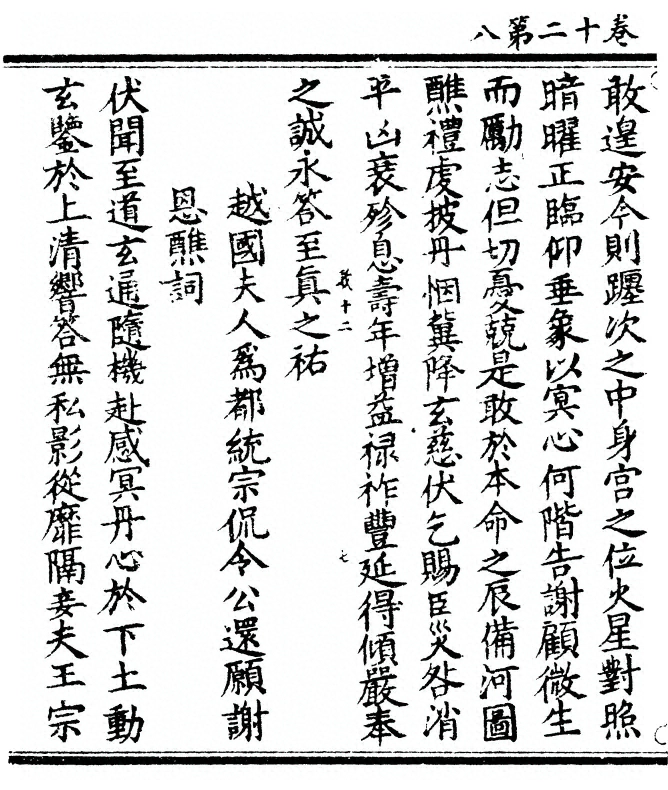 卷十二第八
敢遑安今則躔次之中身宮之位火星對照
暗曜正臨仰垂象以寘心何階告謝顧微生
而勵志但切憂兢是敢於本命之辰備河圖
醮禮虔披丹悃冀降玄慈伏乞賜臣災咎消
平凶衰殄息壽年增益祿祚豐延得傾嚴奉
之誠永答至真之祐
越國夫人為都統宗侃令公還願謝
恩醮詞
伏聞至道玄通隨機赴感冥丹心於下土動
玄鑒於上清響答無私影從靡隔妾夫王宗